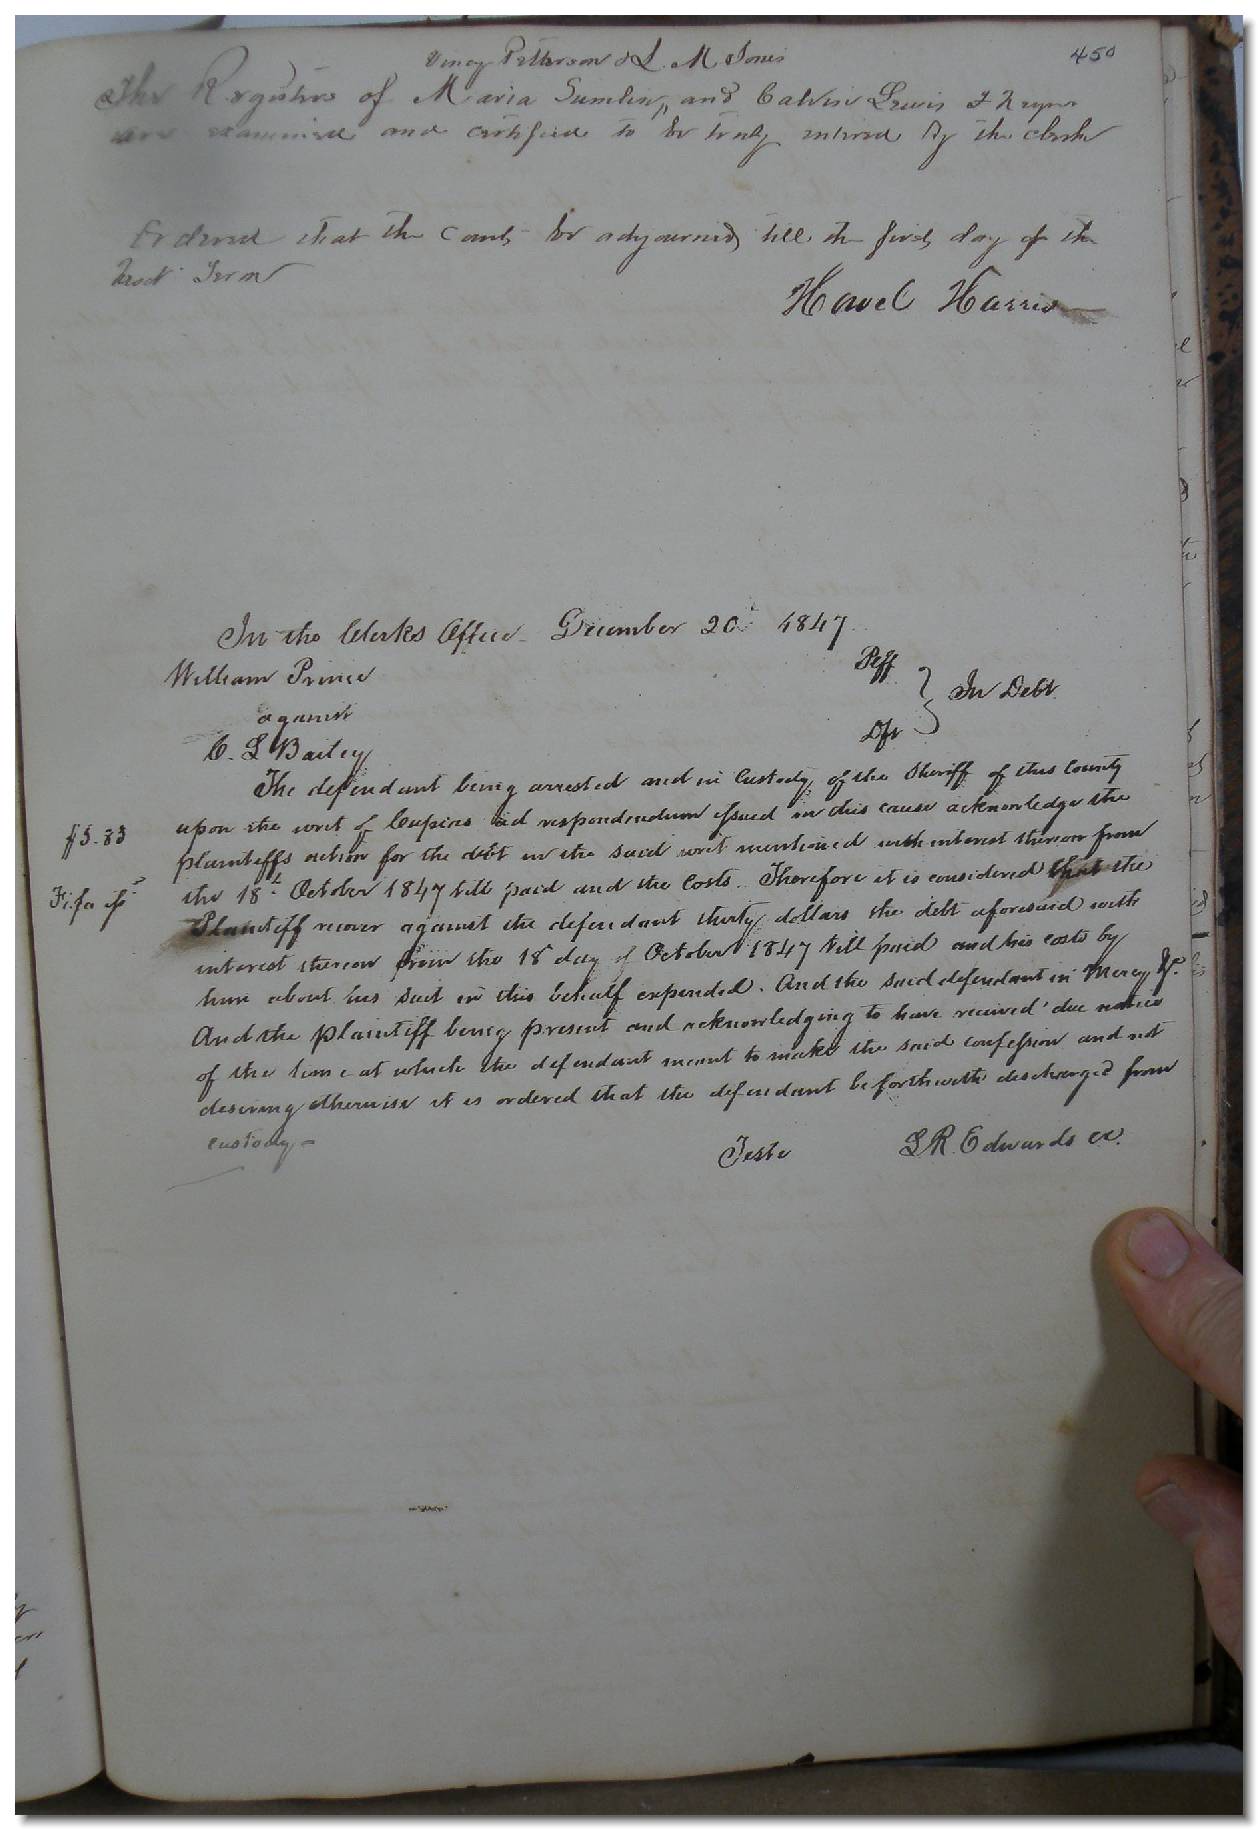 450
Viney Patterson & L. M Jones
The Registers of Maria Sumlin, and Calvin Lewis F Negroes
are examined and certified to be truly entered by the clerk
Ordered that the Court be adjourned till the first day of the
Next Term
Havel Harris
In the Clerks Office December 20 1847
William Prince Plff
against } In Debt
C. L Bailey Dft
The defendant being arrested and in Custody of the Sheriff of this County
upon the writ of Capias ad respondendum issued in this cause acknowledge the
$5.83
plaintiffs action for the debt in the said writ mentioned with interest thereon from
the 18th October 1847 till paid and the Costs. Therefore it is considered that the
Fi. fa iss
Plaintiff recover against the defendant thirty dollars the debt aforesaid with
interest thereon from the 18 day of October 1847 till paid and his costs by
him about his suit in this behalf expended. And the said defendant in Mercy &c.
And the plaintiff being present and acknowledging to have received due notice
of the time at which the defendant meant to make the said confession and not
desiring otherwise it is ordered that the defendant be forthwith discharged from
custody –
Teste L R. Edwards cc.